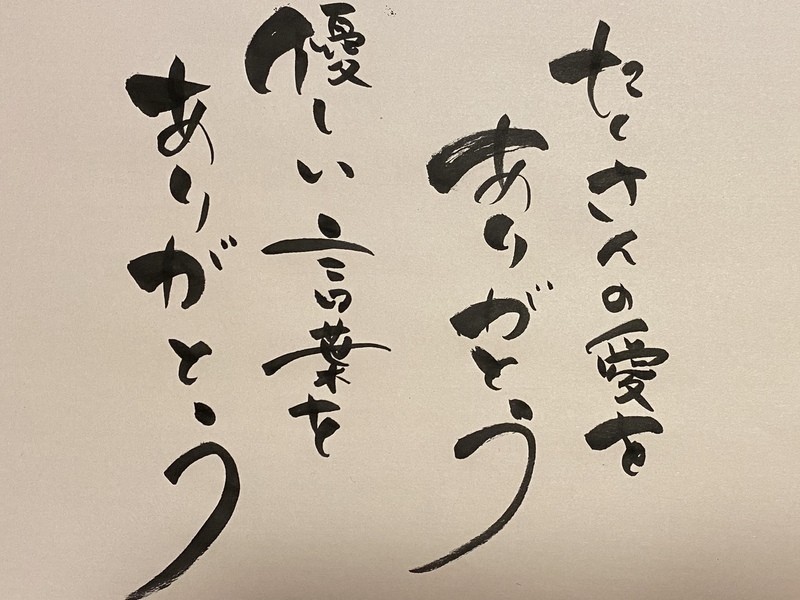 たくさんの愛を
ありがとう
優しい言葉を
ありがとう